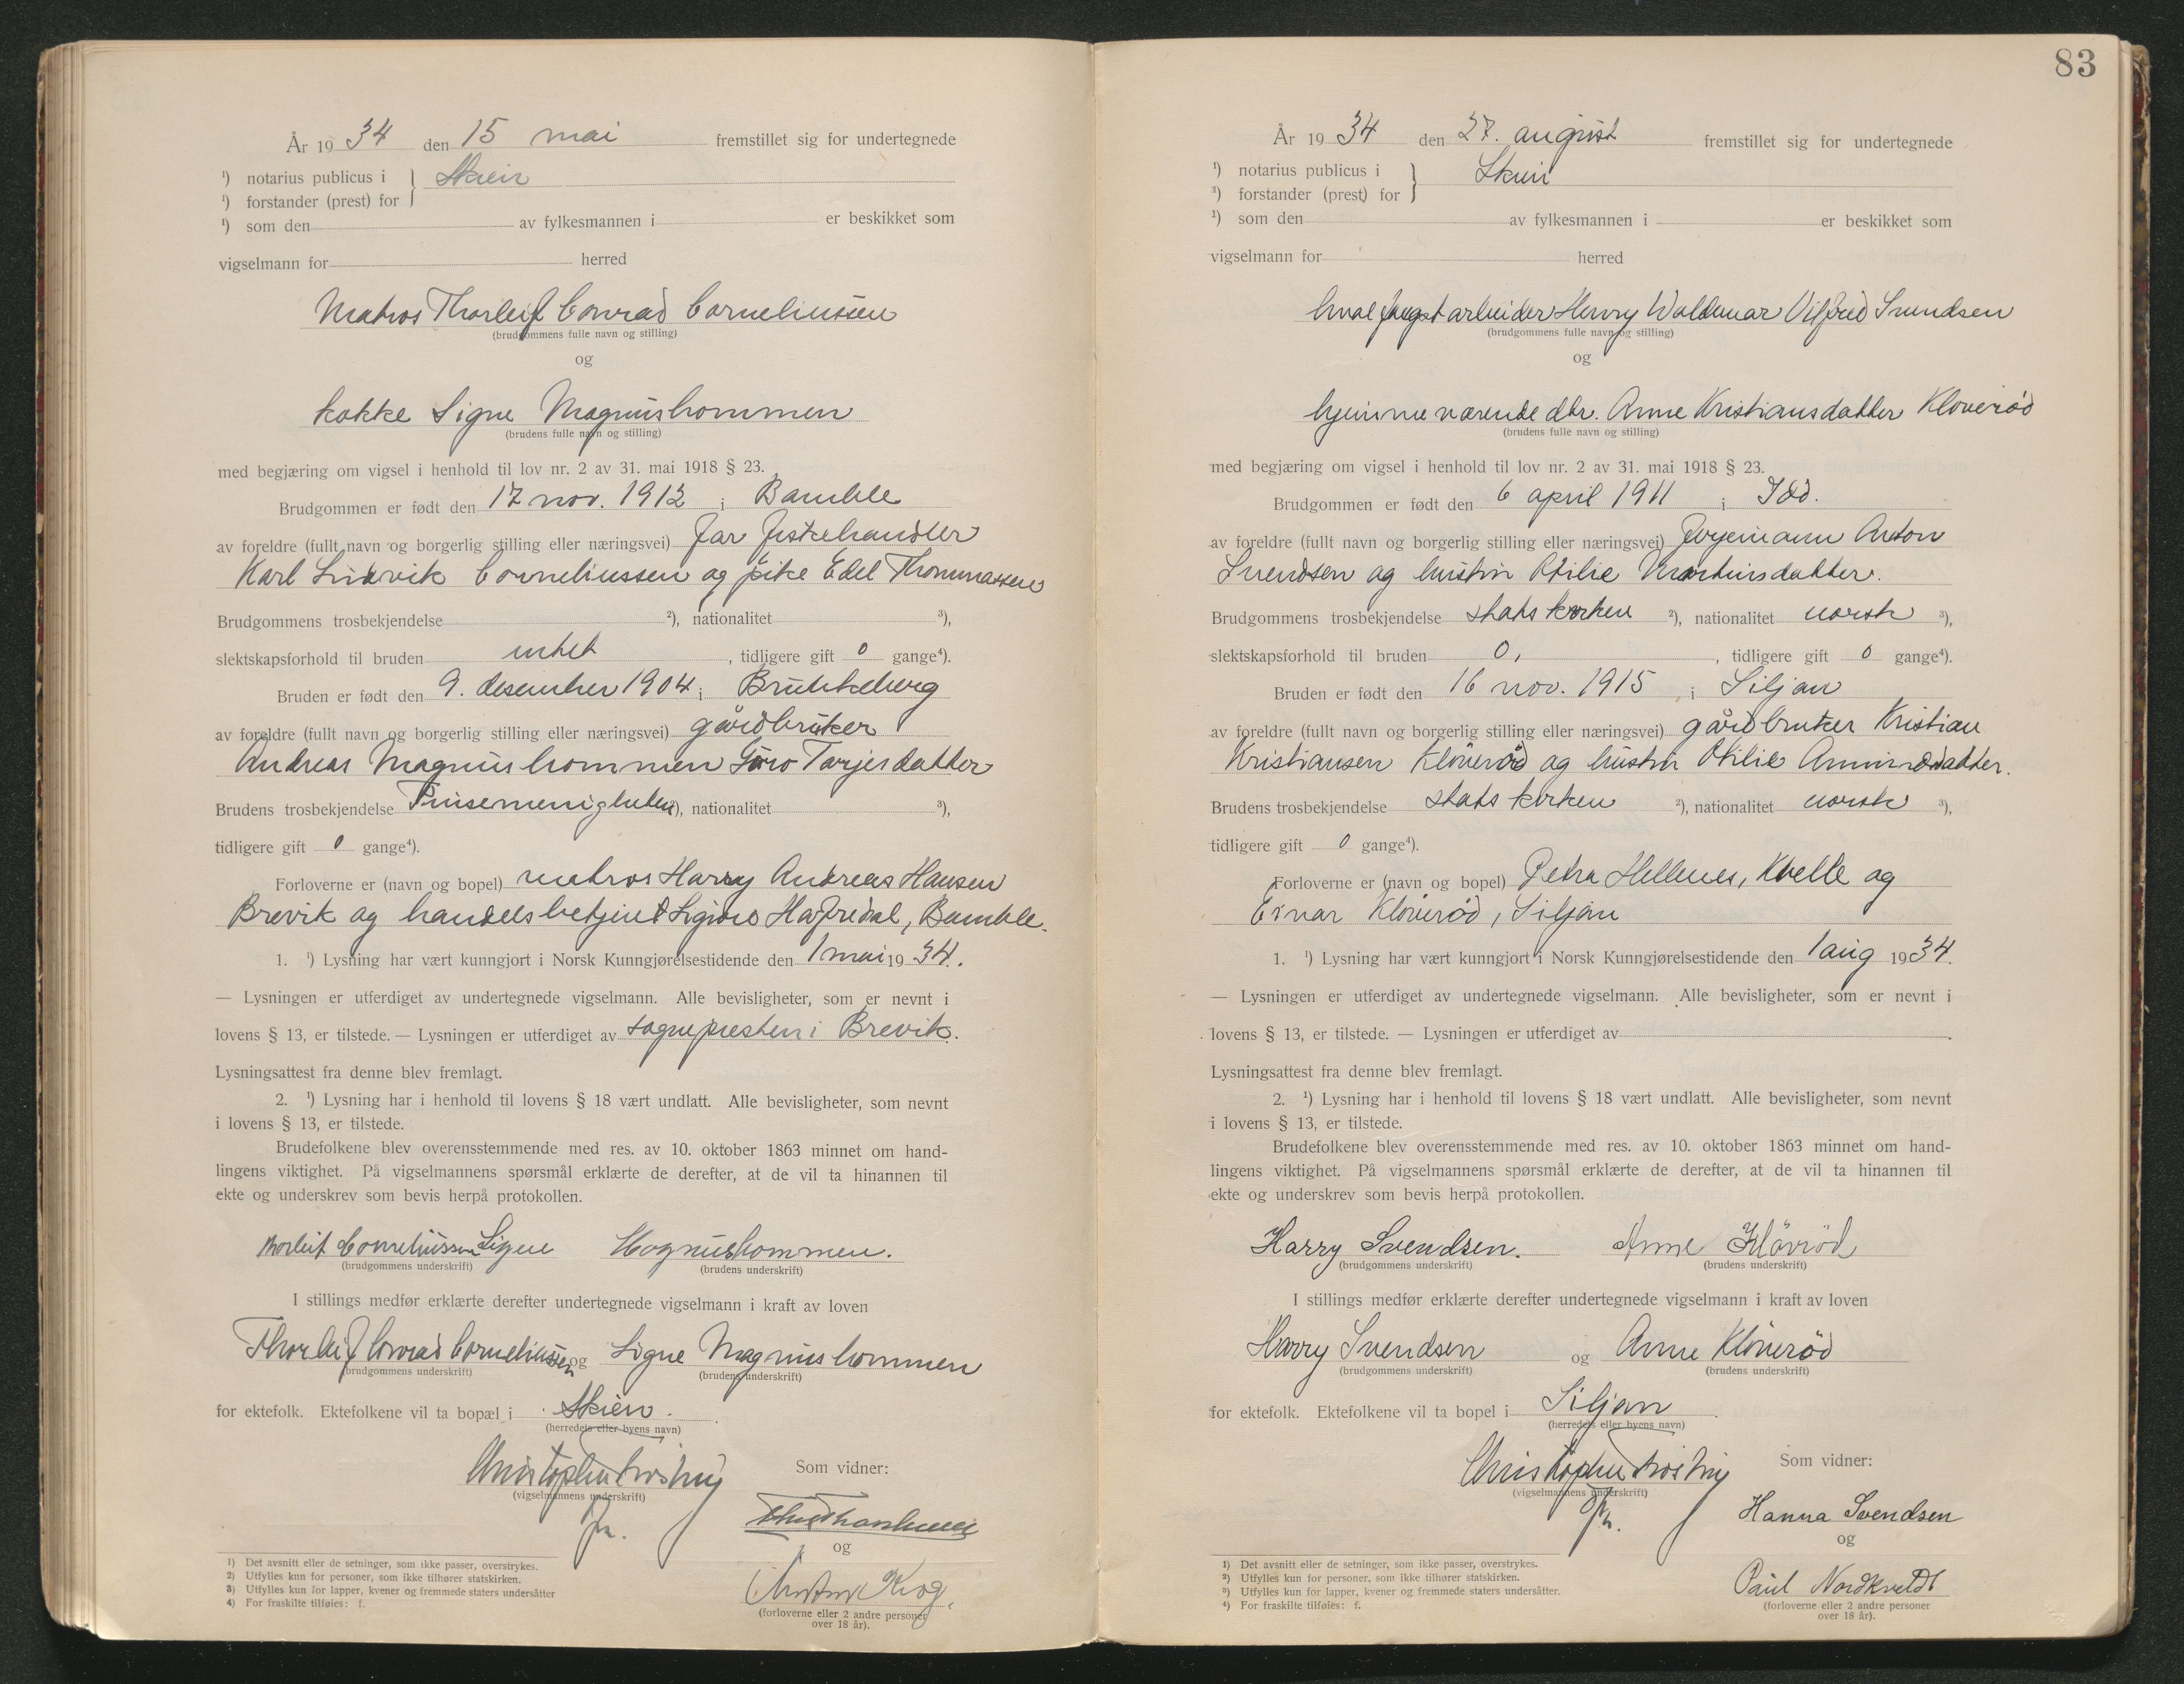 År 19 34 den 15 mai fremstillet sig for undertegnede
¹) notarius publicus i } Skien
¹) forstander (prest) for
¹) som den av fylkesmannen i er beskikket som
vigselmann for herred
Matros Thorleif Conrad Corneliussen
(brudgommens fulle navn og stilling)
og
kokke Signe Magnushommen
(brudens fulle navn og stilling)
med begjæring om vigsel i henhold til lov nr. 2 av 31. mai 1918 § 23.
Brudgommen er født den 17 nov. 1912 i Bamble
av foreldre (fullt navn og borgerlig stilling eller næringsvei) far fiskehandler
Karl Ludvik Corneliussen og pike Edel Thommassen
Brudgommens trosbekjendelse ²), nationalitet ³),
slektskapsforhold til bruden intet , tidligere gift 0 gange⁴).
Bruden er født den 9. desember 1904 i Brunkeberg
av foreldre (fullt navn og borgerlig stilling eller næringsvei) gårdbruker
Andreas Magnushommen Guro Tarjesdatter
Brudens trosbekjendelse Pinsemenigheten ²), nationalitet ³),
tidligere gift 0 gange⁴).
Forloverne er (navn og bopel) matros Harry Andreas Hansen
Brevik og handelsbetjent Sigurd Hafredal, Bamble.
1. ¹) Lysning har vært kunngjort i Norsk Kunngjørelsestidende den 1 mai 19 34.
— Lysningen er utferdiget av undertegnede vigselmann. Alle bevisligheter, som er nevnt i
lovens § 13, er tilstede. — Lysningen er utferdiget av sognepresten i Brevik.
Lysningsattest fra denne blev fremlagt.
2. ¹) Lysning har i henhold til lovens § 18 vært undlatt. Alle bevisligheter, som nevnt
i lovens § 13, er tilstede.
Brudefolkene blev overensstemmende med res. av 10. oktober 1863 minnet om hand-
lingens viktighet. På vigselmannens spørsmål erklærte de derefter, at de vil ta hinannen til
ekte og underskrev som bevis herpå protokollen.
Thorleif Corneliussen Signe Magnushommen.
(brudgommens underskrift) (brudens underskrift)
I stillings medfør erklærte derefter undertegnede vigselmann i kraft av loven
Thorleif Conrad Corneliussen og Signe Magnushommen
(brudgommens underskrift) (brudens underskrift)
for ektefolk. Ektefolkene vil ta bopæl i Skien.
(herredets eller byens navn)
Som vidner:
(vigselmannens underskrift)
og
Krog.
(forloverne eller 2 andre personer
over 18 år).
1) Det avsnitt eller de setninger, som ikke passer, overstrykes.
2) Utfylles kun for personer, som ikke tilhører statskirken.
3) Utfylles kun for lapper, kvener og fremmede staters undersåtter
4) For fraskilte tilføies: f.
83
År 19 34 den 27. august fremstillet sig for undertegnede
¹) notarius publicus i } Skien
³) forstander (prest) for
¹) som den av fylkesmannen i er beskikket som
vigselmann for herred
hvalfangstarbeider Henry Waldemar Vilfred Svendsen
(brudgommens fulle navn og stilling)
og
hjemmeværende dtr. Anne Kristiansdatter Kloverød
(brudens fulle navn og stilling)
med begjæring om vigsel i henhold til lov nr. 2 av 31. mai 1918 § 23.
Brudgommen er født den 6 april 1911 i Idd.
av foreldre (fullt navn og borgerlig stilling eller næringsvei) fergemann Anton
Svendsen og hustru Otilie Martinsdatter.
Brudgommens trosbekjendelse statskirken ²), nationalitet norsk ³),
slektskapsforhold til bruden 0, , tidligere gift 0 gange⁴).
Bruden er født den 16 nov. 1915 i Siljan
av foreldre (fullt navn og borgerlig stilling eller næringsvei) gårdbruker Kristian
Kristiansen Kloverød og hustru Otilie
Brudens trosbekjendelse statskirken ²), nationalitet norsk ³),
tidligere gift 0 gange⁴).
Forloverne er (navn og bopel) Petra Hellenes, Kvelle og
Einar Kloverød, Siljan
1. ¹) Lysning har vært kunngjort i Norsk Kunngjørelsestidende den 1 aug 19 34.
— Lysningen er utferdiget av undertegnede vigselmann. Alle bevisligheter, som er nevnt i
lovens § 13, er tilstede. — Lysningen er utferdiget av .
Lysningsattest fra denne blev fremlagt.
2. ¹) Lysning har i henhold til lovens § 18 vært undlatt. Alle bevisligheter, som nevnt
i lovens § 13, er tilstede.
Brudefolkene blev overensstemmende med res. av 10. oktober 1863 minnet om hand-
lingens viktighet. På vigselmannens spørsmål erklærte de derefter, at de vil ta hinannen til
ekte og underskrev som bevis herpå protokollen.
Harry Svendsen. Anne Klövröd
(brudgommens underskrift) (brudens underskrift)
I stillings medfør erklærte derefter undertegnede vigselmann i kraft av loven
Harry Svendsen og Anne Kloverød
(brudgommens underskrift) (brudens underskrift)
for ektefolk. Ektefolkene vil ta bopel i Siljan.
(herredets eller byens navn)
Som vidner:
(vigselmannens underskrift)
Hanna Svendsen
og
Paul Nordkveldt
(forloverne eller 2 andre personer
over 18 år).
1) Det avsnitt eller de setninger, som ikke passer, overstrykes.
2) Utfylles kun for personer, som ikke tilhører statskirken.
3) Utfylles kun for lapper, kvener og fremmede staters undersåtter.
4) For fraskilte tilføies: f.